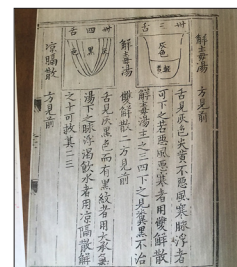 解毒湯 方見前
卅 舌
灰色
舌見灰色尖黄不惡風寒脉浮者
可下之若惡風惡寒者用雙解散
解毒湯主之三四下之見糞黑不治
解毒湯 雙解散二方見前
卅四舌
灰色
黑
舌見灰黑色而有黑紋者用大承氣
湯下之脉浮渴飲水者用凉膈散解
之十可救其二三
凉膈散 方見前